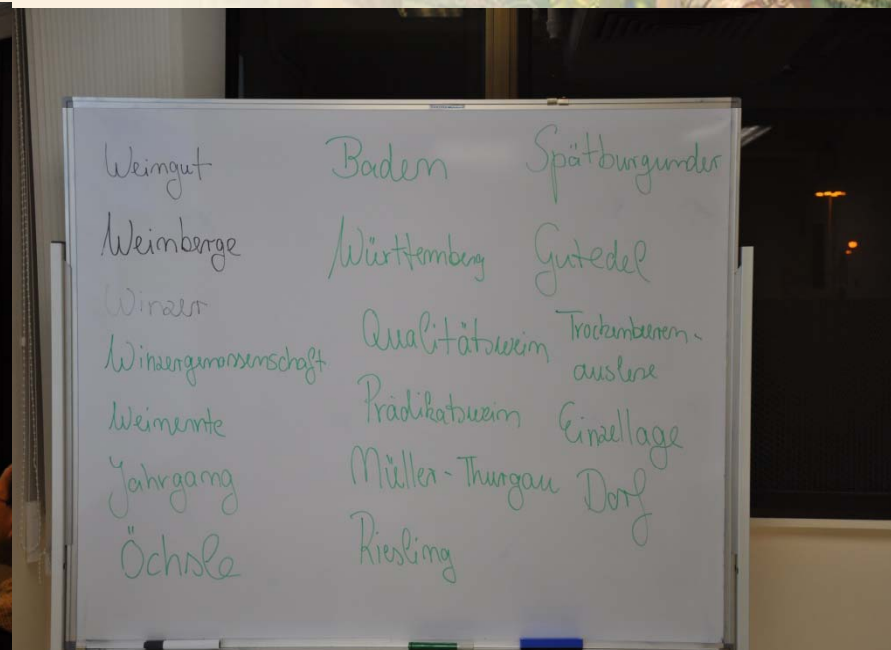 Weingut
Weinberge
Winzer
Winzergenossenschaft
Weinernte
Jahrgang
Öchsle
Baden
Württemberg
Qualitätswein
Prädikatswein
Müller-Thurgau
Riesling
Spätburgunder
Gutedel
Trockenbeeren-
auslese
Einzellage
Dorf